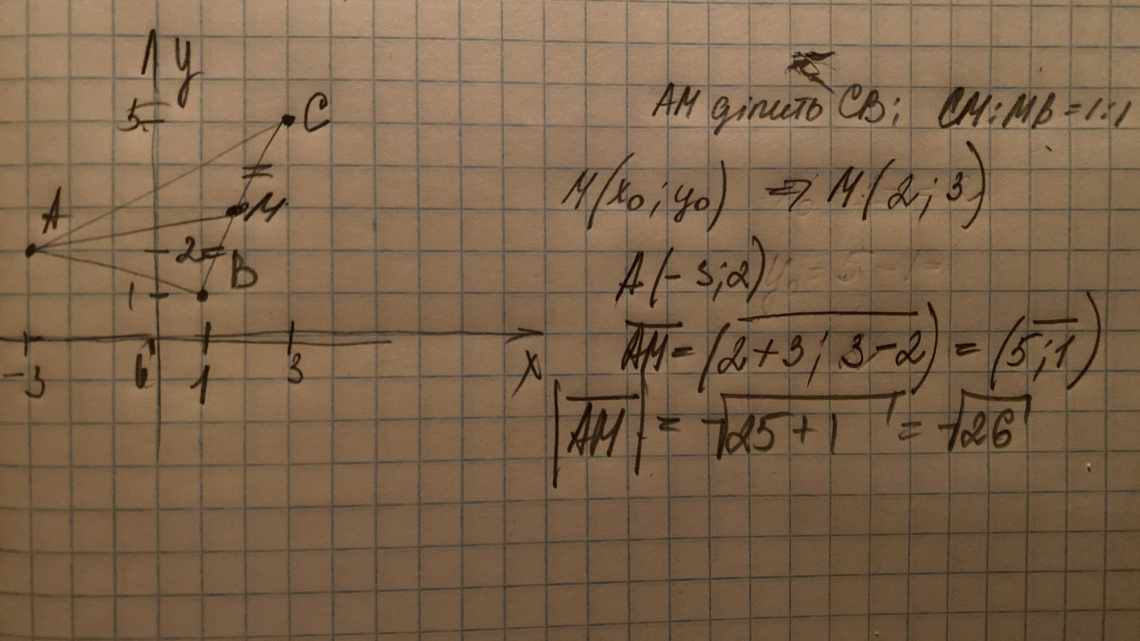 y
5
C
A
M
2
B
1
-3
0
1
3
x
AM ділить CB; CM:MB=1:1
M(x₀; y₀) ⇒ M(2; 3)
A(-3; 2)
A͞M͞ = (2+3; 3-2) = (5; 1)
|A͞M͞| = √25+1 = √26